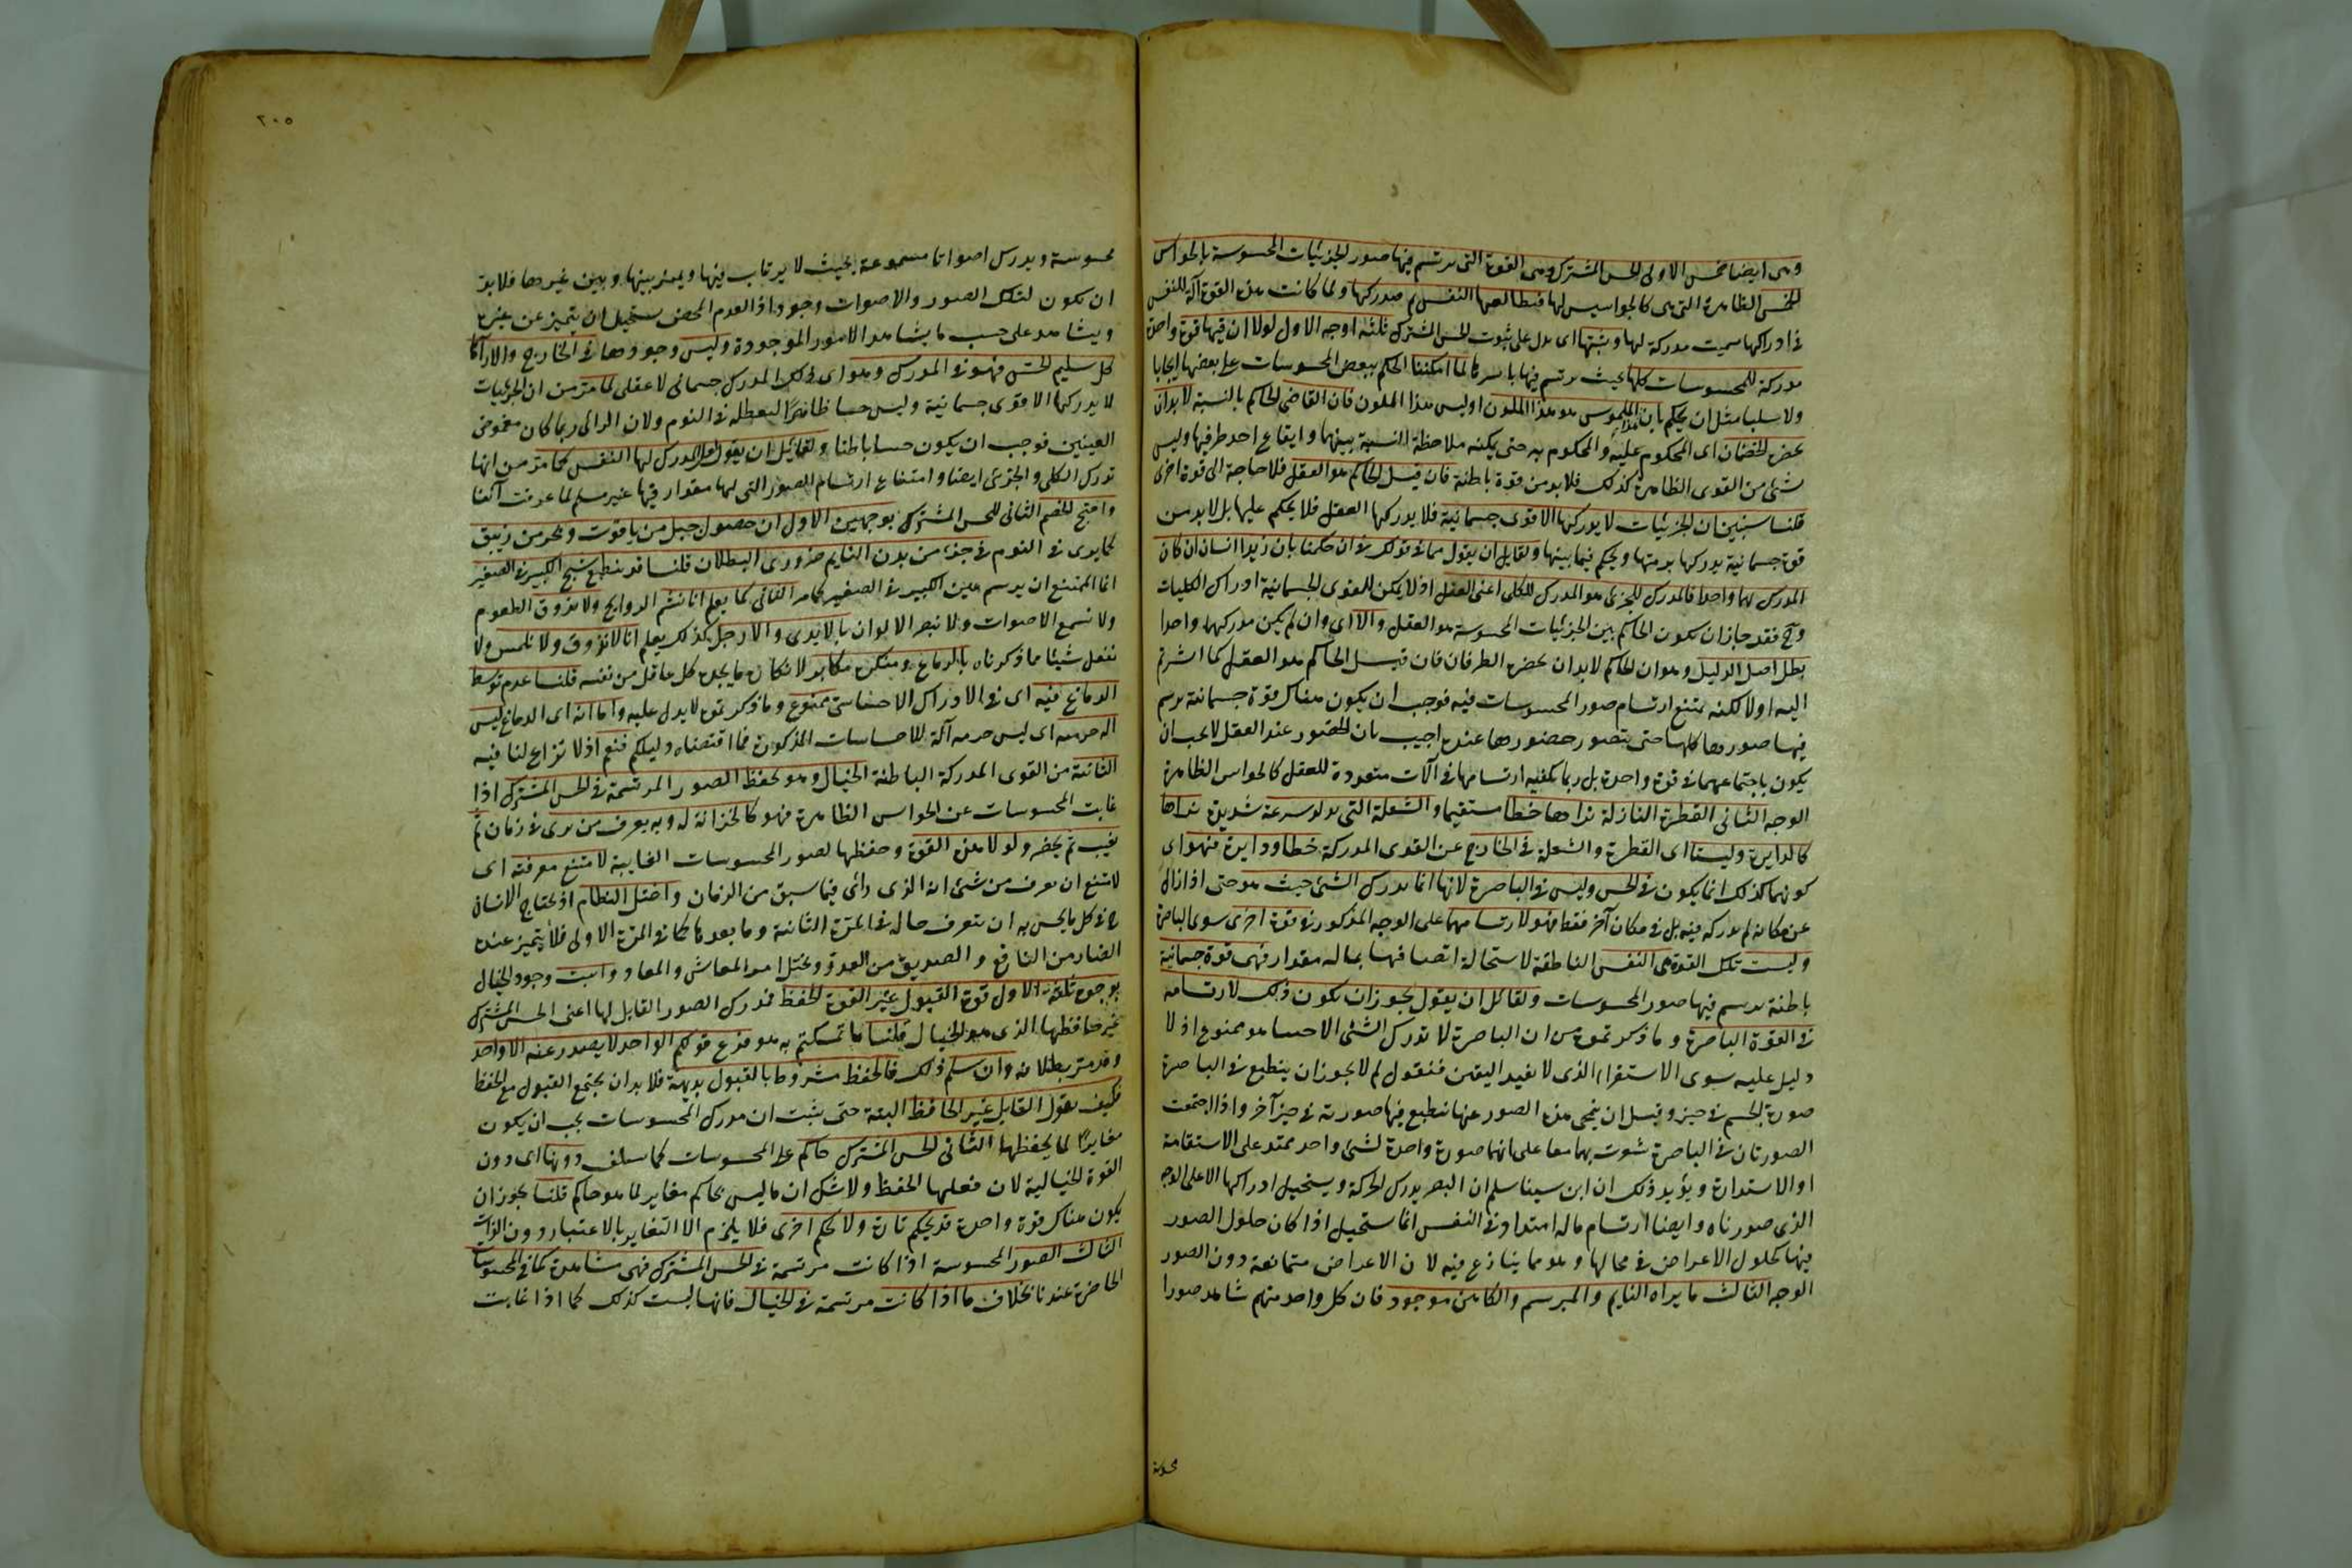 وهى ايضا خمس الاولى الحس المشترك وهى القوة التى يرتسم فيها صور الجزئيات المحسوسة بالحواس
الخمس الظاهرة التى هى كالجواسيس لها فيطالعها النفس ثم فيدركها ولما كانت هذه القوة آلة للنفس
فى ادراكها سميت مدركة لها ويثبتها اى يدل على ثبوت الحس المشترك ثلثة اوجه الاول لولا ان فيها قوة واحدة
مدركة للمحسوسات كلها بحيث يرتسم فيها باسرها لما امكننا الحكم ببعض المحسوسات على بعضها ايجابا
ولا سلبا مثل ان يحكم بان هذا الملموس هو هذا الملون او ليس هذا الملون فان القاضى الحاكم بالنسبة لا بد ان
يحضره الخصمان اى المحكوم عليه والمحكوم به حتى يمكنه ملاحظة النسبة بينهما وايقاع احد طرفيها وليس
شئ من القوى الظاهرة كذلك فلا بد من قوة باطنة فان قيل الحاكم هو العقل فلا حاجة الى قوة اخرى
قلنا سنبين ان الجزئيات لا يدركها الا قوى جسمانية فلا يدركها العقل فلا يحكم عليها بل لا بد من
قوة جسمانية يدركها برمتها ويحكم فيما بينها ولقايل ان يقول هما فى قولك فى ان حكمنا بان زيدا انسان ان كان
المدرك لهما واحدا فالمدرك للجزئى هو المدرك للكلى اعنى العقل اذ لا يمكن للقوى الجسمانية ادراك الكليات
وح فقد جاز ان يكون الحاكم بين الجزئيات المحسوسة هو العقل والا اى وان لم يكن مدركهما واحدا
بطل اصل الدليل وهو ان الحاكم لا بد ان يحضره الطرفان فان قيل الحاكم هو العقل كما اشرتم
اليه اولا لكنه يمتنع ارتسام صور المحسوسات فيه فوجب ان يكون هناك قوة جسمانية يرسم
فيها صورها كلها حتى يتصور حضورها عنده اجيب بان الحضور عند العقل لا يجب ان
يكون باجتماعهما فى قوة واحدة بل ربما يكفيه ارتسامها فى آلات متعددة للعقل كالحواس الظاهرة
الوجه الثانى القطرة النازلة نراها خطا مستقيما والشعلة التى تدار بسرعة شديدة نراها
كالدايرة وليستا اى القطرة والشعلة فى الخارج عن القوى المدركة خطا ودايرة فهو اى
كونهما كذلك انما يكون فى الحس وليس فى الباصرة لانها انما يدرك الشئ حيث هو حتى اذا زال
عن مكانه لم يدركه فيه بل فى مكان آخر فقط فهو لارتسامهما على الوجه المذكور فى قوة اخرى سوى الباصرة
وليست تلك القوة هى النفس الناطقة لاستحالة اتصافها بماله مقدار فهى قوة جسمانية
باطنة يرسم فيها صور المحسوسات ولقائل ان يقول يجوز ان يكون ذلك لارتسامه
فى القوة الباصرة وما ذكرتموه من ان الباصرة لا تدرك الشئ الا حيث هو ممنوع اذ لا
دليل عليه سوى الاستقراء الذى لا يفيد اليقين فنقول لم لا يجوز ان ينطبع فى الباصرة
صورة الجسم فى حيز وقبل ان ينمحى هذه الصورة عنها ينطبع فيها صورته فى حيز آخر واذا اجتمعت
الصورتان فى الباصرة شعرت بهما معا على انهما صورة واحدة لشئ واحد ممتد على الاستقامة
او الاستدارة ويؤيد ذلك ان ابن سينا سلم ان البصر يدرك الحركة ويستحيل ادراكها الا على الوجه
الذى صورناه وايضا ارتسام ماله امتداد فى النفس انما يستحيل اذا كان حلول الصور
فيها كحلول الاعراض فى محالها وهو مما ينازع فيه لان الاعراض متمانعة دون الصور
الوجه الثالث ما يراه النايم والمبرسم والكاهن موجود فان كل واحد منهم شاهد صورا
محسوسة
٢٠٥
محسوسة ويدرك اصواتا مسموعة بحيث لا يرتاب فيها ويميز بينها وبين غيرها فلا بد
ان يكون لتلك الصور والاصوات وجود اذ العدم المحض يستحيل ان يتميز عن غيره
ويشاهد على حسب ما يشاهد الامور الموجودة وليس وجودها فى الخارج والا رآها
كل سليم الحس فهو فى المدرك وهو اى ذلك المدرك جسمانى لا عقلى لما مر من ان الجزئيات
لا يدركها الا قوى جسمانية وليس حسا ظاهرا لتعطله فى النوم ولان الرائى ربما كان مغموض
العينين فوجب ان يكون حسا باطنا ولقائل ان يقول لعل المدرك لها النفس كما مر من انها
تدرك الكلى والجزئى ايضا وامتناع ارتسام الصور التى لها مقدار فيها غير مسلم لما عرفت آنفا
واحتج الخصم الثانى للحس المشترك بوجهين الاول ان حصول جبل من ياقوت وبحر من زيبق
كما يرى فى النوم فى جزء من بدن النايم ضرورى البطلان قلنا قد ينطبع شبح الكبير فى الصغير
انما الممتنع ان يرسم عين الكبير فى الصغير كما مر الثانى كما يعلم انا نشم الروايح ولا نذوق الطعوم
ولا نسمع الاصوات ولا نبصر الالوان بالايدى والارجل كذلك يعلم انا لا نذوق ولا نلمس ولا
نفعل شيئا مما ذكرناه بالدماغ ومنكره مكابر لانكاره ما يجده كل عاقل من نفسه قلنا عدم توسط
الدماغ فيه اى فى الادراك الاحساسى ممنوع وما ذكرتموه لا يدل عليه واما انه اى الدماغ ليس
آلة جرمه اى ليس جرمه آلة للاحساسات المذكورة مما اقتضاه دليلكم فنعم اذ لا نزاع لنا فيه
الثانية من القوى المدركة الباطنة الخيال وهو يحفظ الصور المرتسمة فى الحس المشترك اذا
غابت المحسوسات عن الحواس الظاهرة فهو كالخزانة له وبه يعرف من يرى فى زمان ثم
يغيب ثم يحضر ولولا هذه القوة وحفظها لصور المحسوسات الغايبة لامتنع معرفته اى
لامتنع ان نعرف من شئ انه الذى رأى فيما سبق من الزمان واختل النظام اذ يحتاج الانسان
ح فى كل ما يحس به ان يتعرف حاله فى المرة الثانية وما بعدها كما فى المرة الاولى فلا يتميز عنده
الضار من النافع والصديق من العدو ويختل امر المعاش والمعاد واثبت وجود الخيال
بوجوه ثلثة الاول قوة القبول غير القوة الحفظ فمدرك الصور القابل لها اعنى الحس المشترك
غير حافظها الذى هو الخيال قلنا ما تمسكتم به هو فرع قولكم الواحد لا يصدر عنه الا واحد
وقد مر بطلانه وان سلم ذلك فالحفظ مشروط بالقبول بديهة فلا بد ان يجتمع القبول مع الحفظ
فكيف يقول القابل غير الحافظ البتة حتى يثبت ان مدرك المحسوسات يجب ان يكون
مغايرا لما يحفظها الثانى الحس المشترك حاكم على المحسوسات كما سلف دونها اى دون
القوة الخيالية لان فعلها الحفظ ولا شك ان ما ليس بحاكم مغاير لما هو حاكم قلنا يجوز ان
يكون هناك قوة واحدة قد يحكم تارة ولا يحكم اخرى فلا يلزم الا التغاير بالاعتبار دون الذات
الثالث الصور المحسوسة اذا كانت مرتسمة فى الحس المشترك فهى مشاهدة كما فى المحسوسات
الحاضرة عندنا بخلاف ما اذا كانت مرتسمة فى الخيال فانها ليست كذلك كما اذا غابت